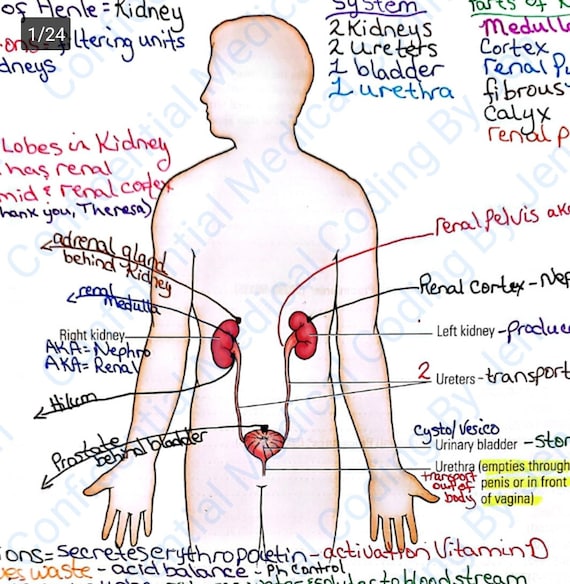 of Henle = Kidney
1/24
ons = filtering units
dneys
System
2 Kidneys
2 Ureters
1 bladder
1 urethra
Parts of K
Medulla
Cortex
renal Pu
fibrous
Calyx
renal p
Lobes in Kidney
has renal
mid & renal cortex
hank you, Theresa)
adrenal gland
behind Kidney
renal
Medulla
Right kidney
AKA = Nephro
AKA = Renal
Hilum
Prostate
behind bladder
renal Pelvis aka
Renal Cortex - Nep
Left kidney - produce
2 Ureters - transport
Cysto/Vesico
Urinary bladder - Stor
Urethra (empties through
penis or in front
of vagina)
transport
out of
body
ions = secretes erythropoietin - activation Vitamin D
es waste - acid balance - Ph control
to bloodstream
Confidential Medical Coding By Jen